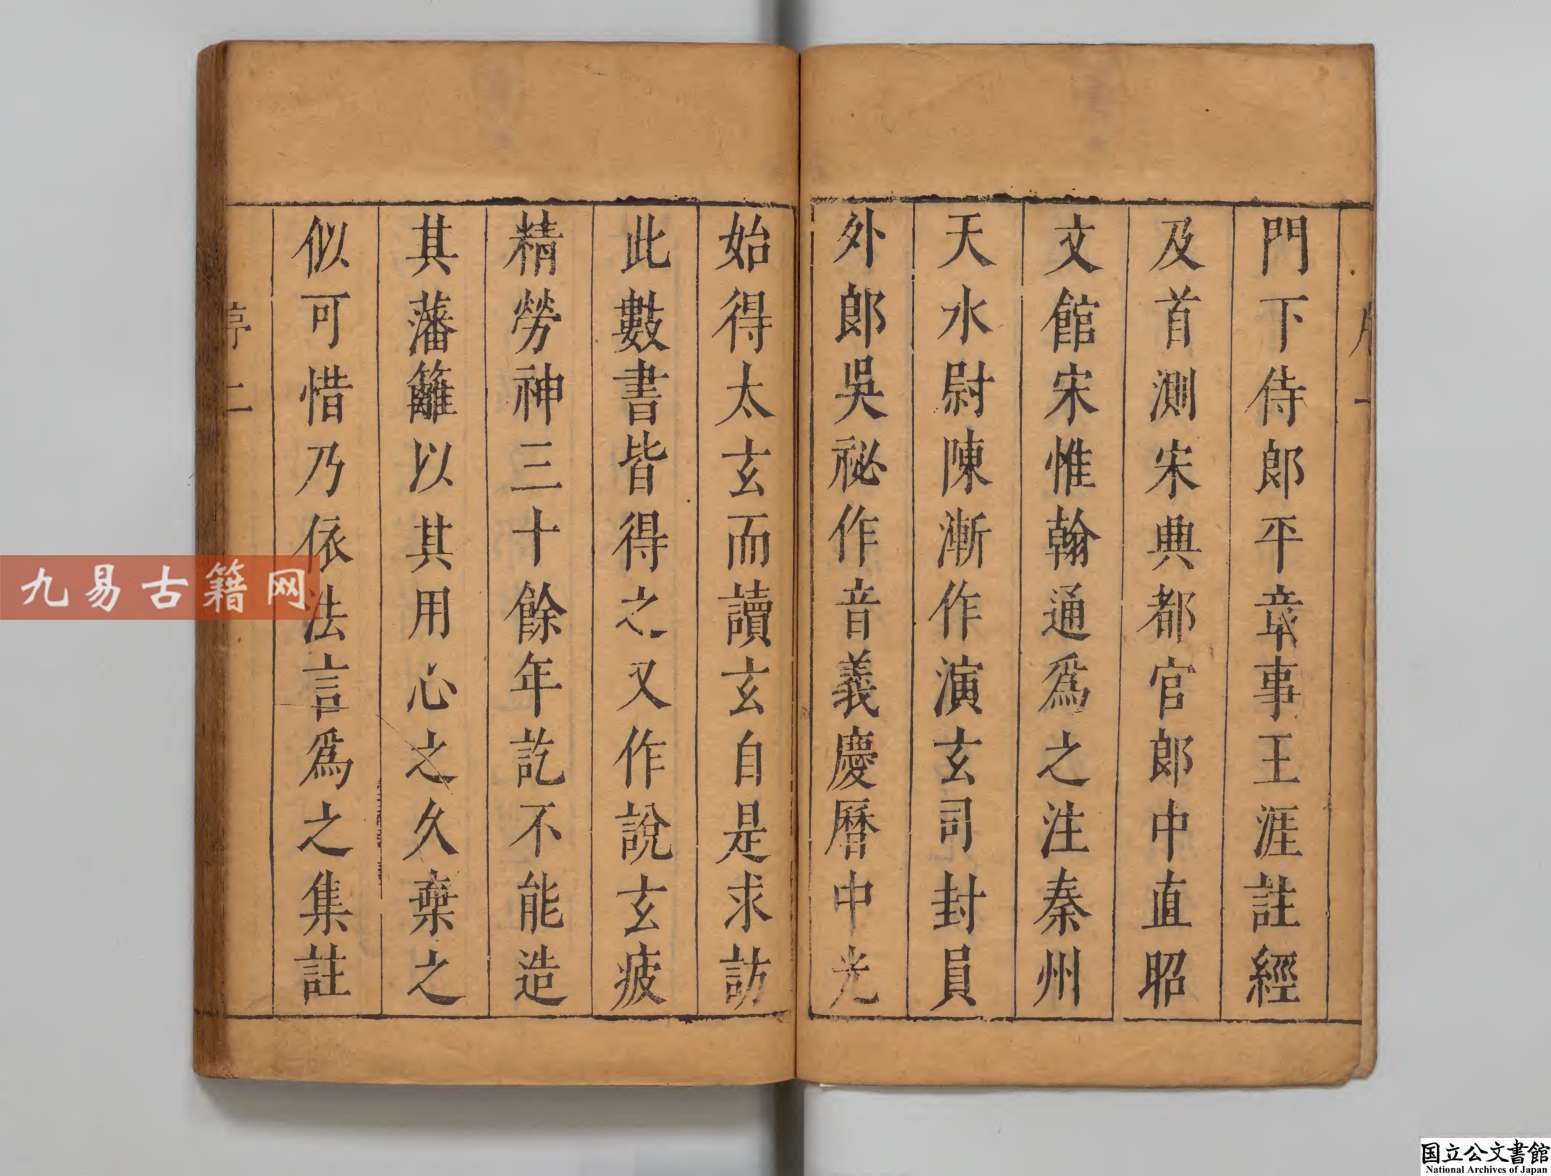 門下侍郎平章事王涯註經
及首測宋典都官郎中直昭
文館宋惟翰通爲之注秦州
天水尉陳漸作演玄司封員
外郎吳祕作音義慶曆中光
始得太玄而讀玄自是求訪
此數書皆得之又作說玄疲
精勞神三十餘年訖不能造
其藩籬以其用心之久棄之
似可惜乃依法言爲之集註
序二
九易古籍网
国立公文書館
National Archives of Japan